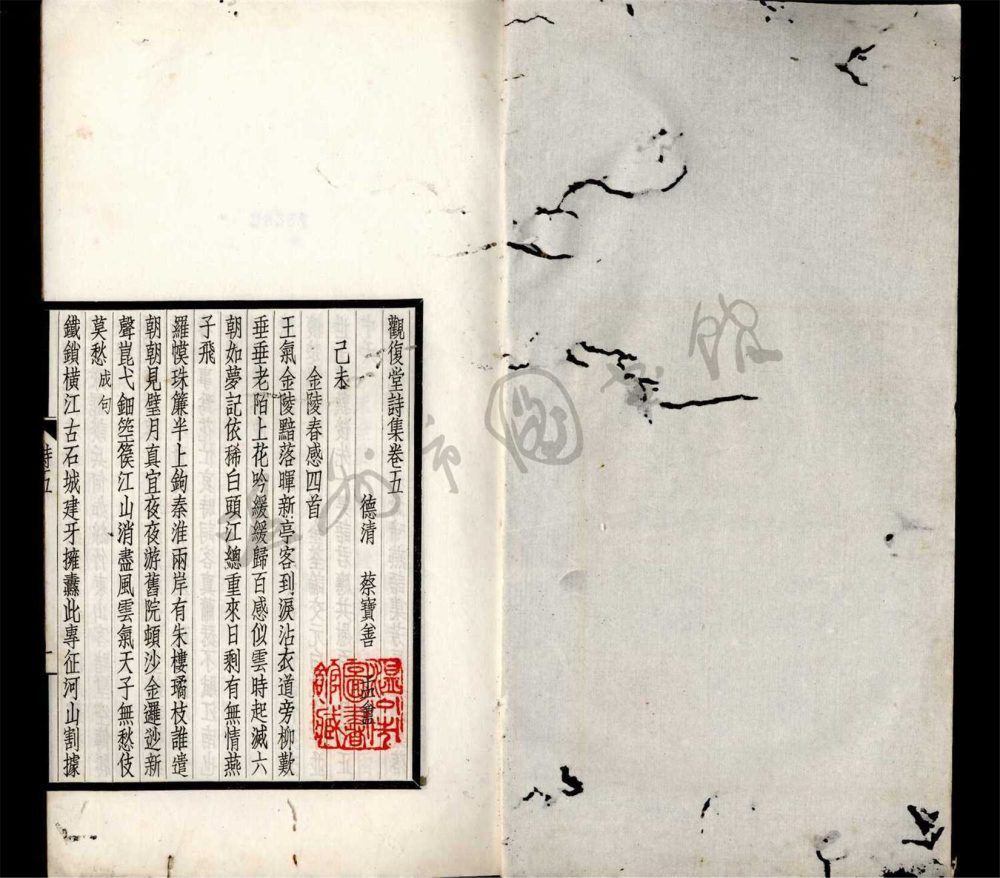 觀復堂詩集卷五
德清 蔡寶善
己未
金陵春感四首
王氣金陵黯落暉新亭客到淚沾衣道旁柳歎
垂垂老陌上花吟緩緩歸百感似雲時起滅六
朝如夢記依稀白頭江總重來日剩有無情燕
子飛
羅幙珠簾半上鉤秦淮兩岸有朱樓璚枝誰遣
朝朝見璧月真宜夜夜游舊院頓沙金邐迆新
聲崑弋鈿箜篌江山消盡風雲氣天子無愁伎
莫愁成句
鐵鎖橫江古石城建牙擁纛此專征河山割據
詩五
一
溫州市圖書館藏
溫州市圖書館